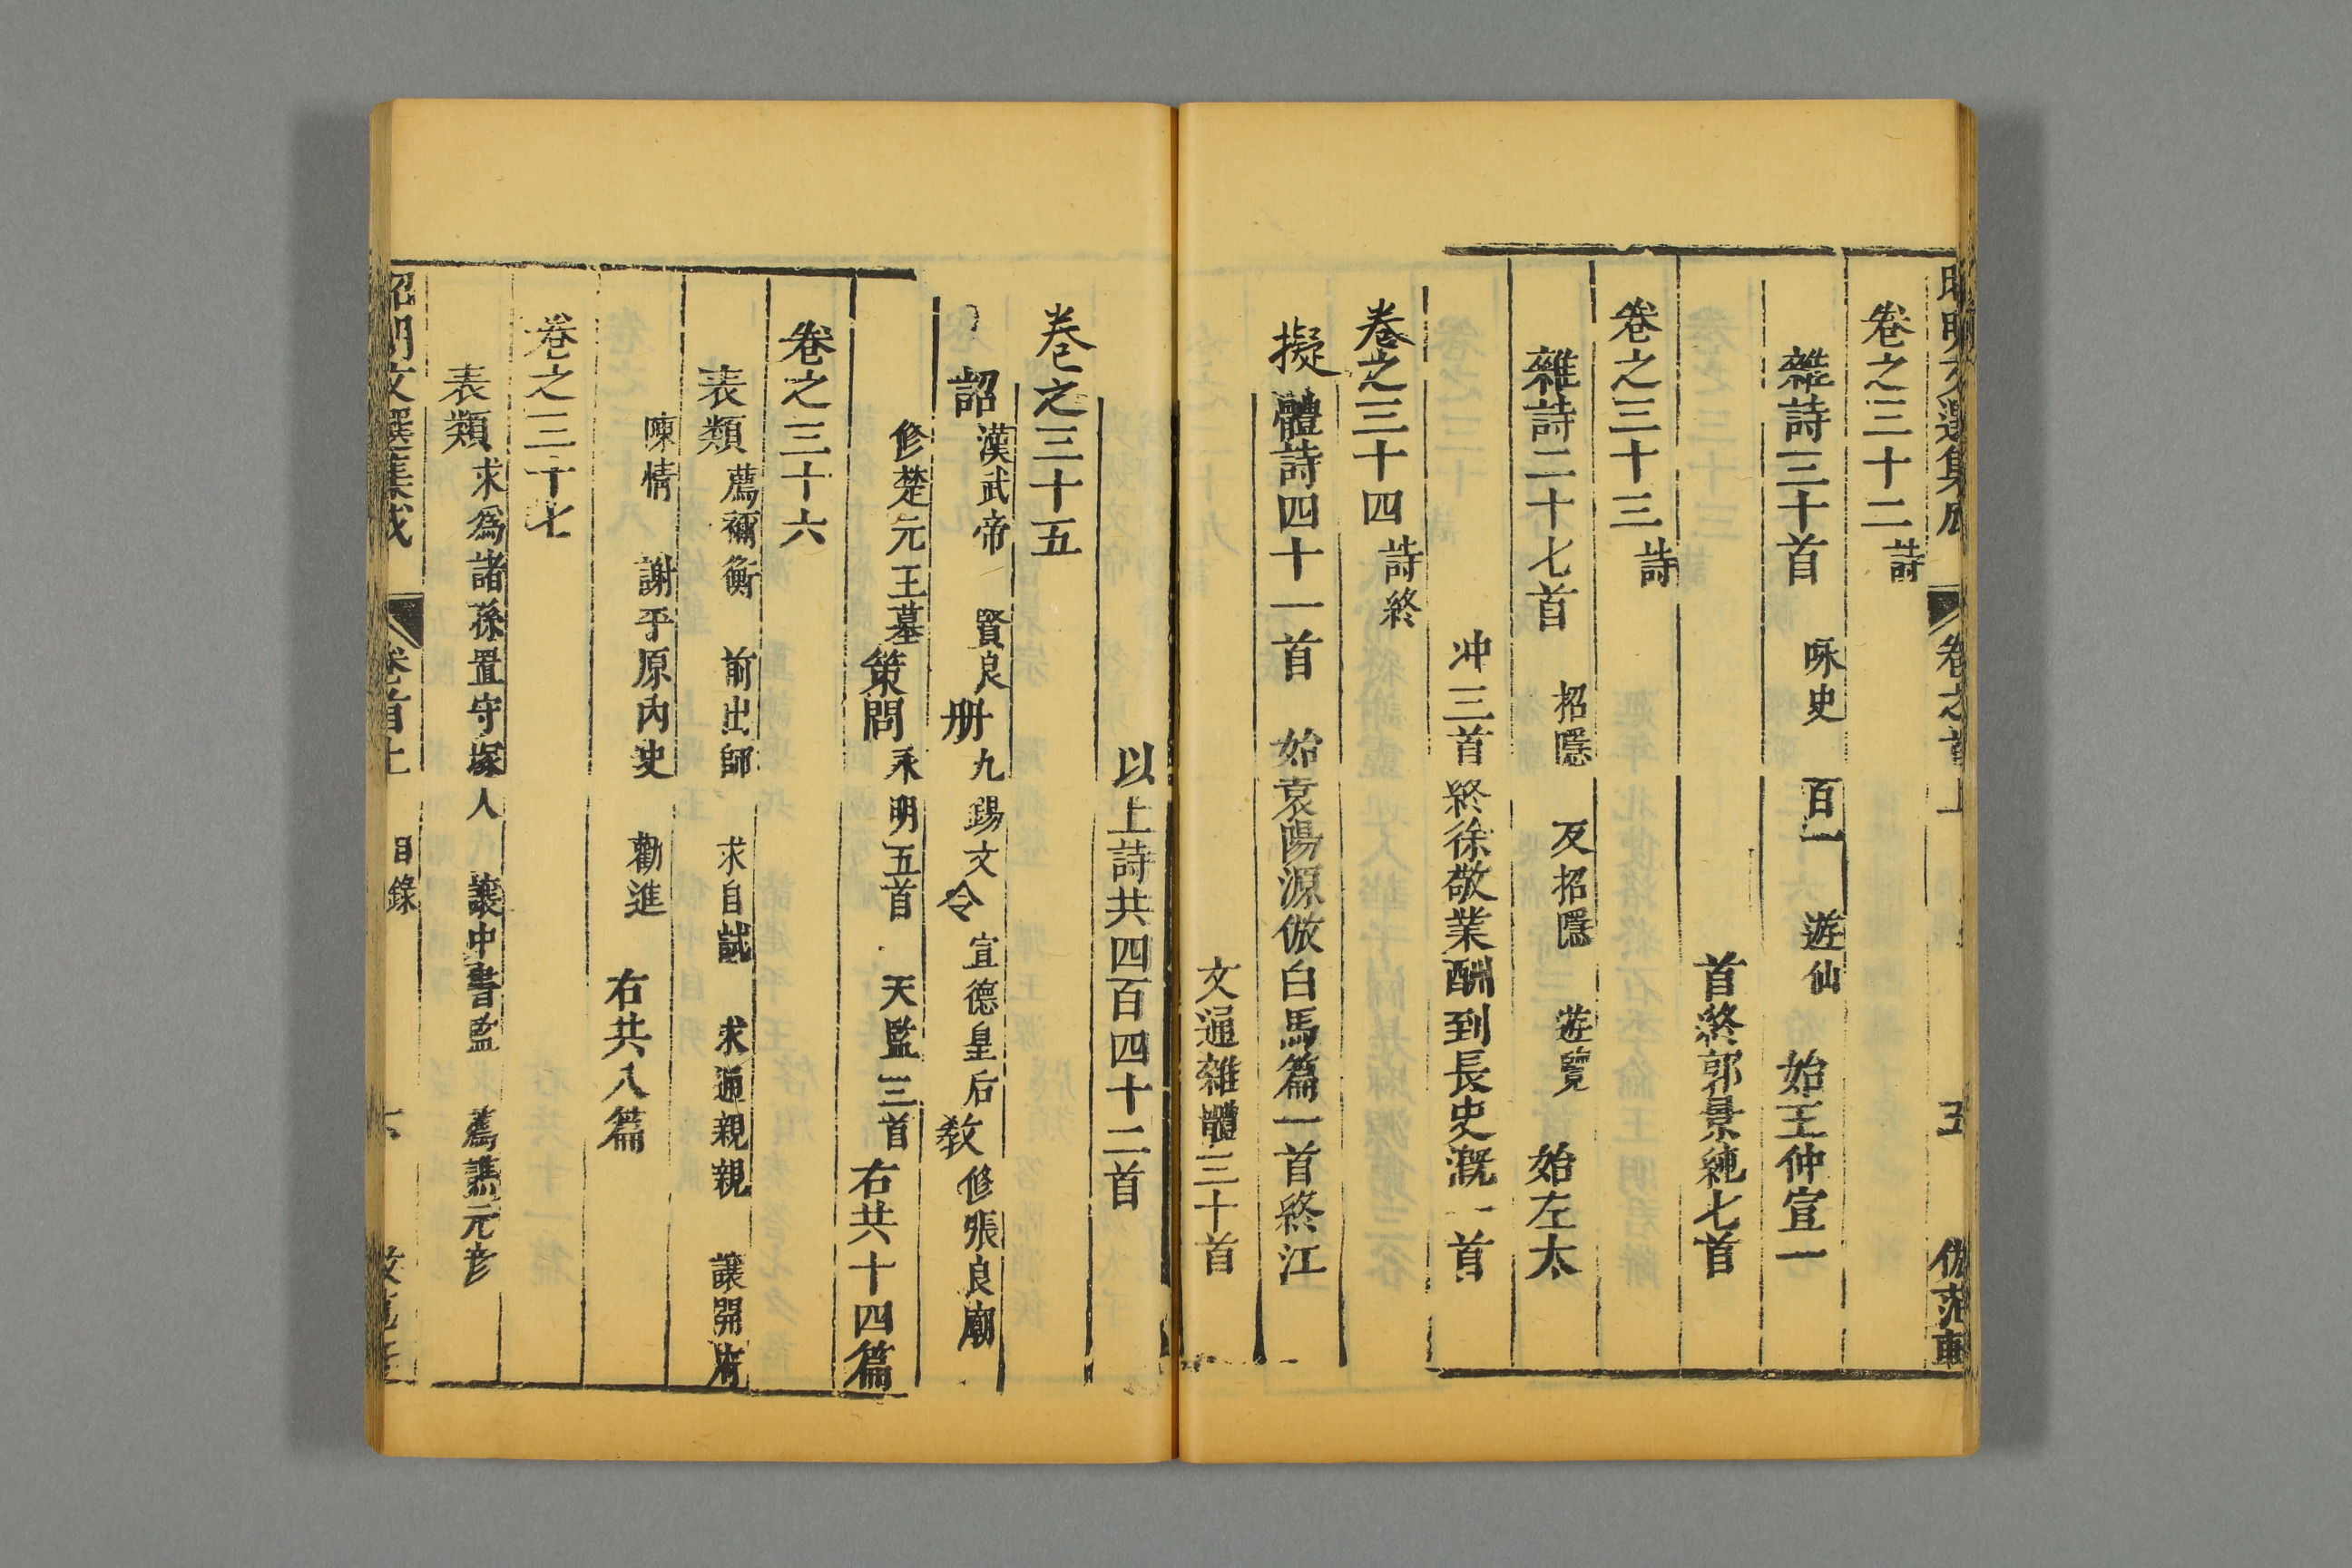 卷之三十二 詩
雜詩三十首 咏史 百一 遊仙 始王仲宣一
首終郭景純七首
卷之三十三 詩
雜詩二十七首 招隱 反招隱 遊覽 始左太
冲三首終徐敬業酬到長史溉一首
卷之三十四 詩終
擬體詩四十一首 始袁陽源倣白馬篇一首終江
文通雜體三十首
以上詩共四百四十二首
卷之三十五
詔 漢武帝 賢良 册 九錫文 令 宣德皇后 敎 修張良廟
修楚元王墓 策問 永明五首 天監三首 右共十四篇
卷之三十六
表類 薦禰衡 前出師 求自試 求通親親 讓開府
陳情 謝平原內史 勸進 右共八篇
卷之三十七
表類 求爲諸孫置守塚人 讓中書監 薦譙元彥
昭明文選集成 卷首上 目錄